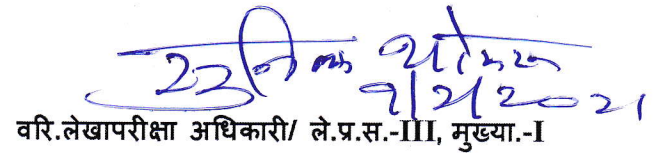 9/2/2021
वरि.लेखापरीक्षा अधिकारी/ ले.प्र.स.-III, मुख्या.-I